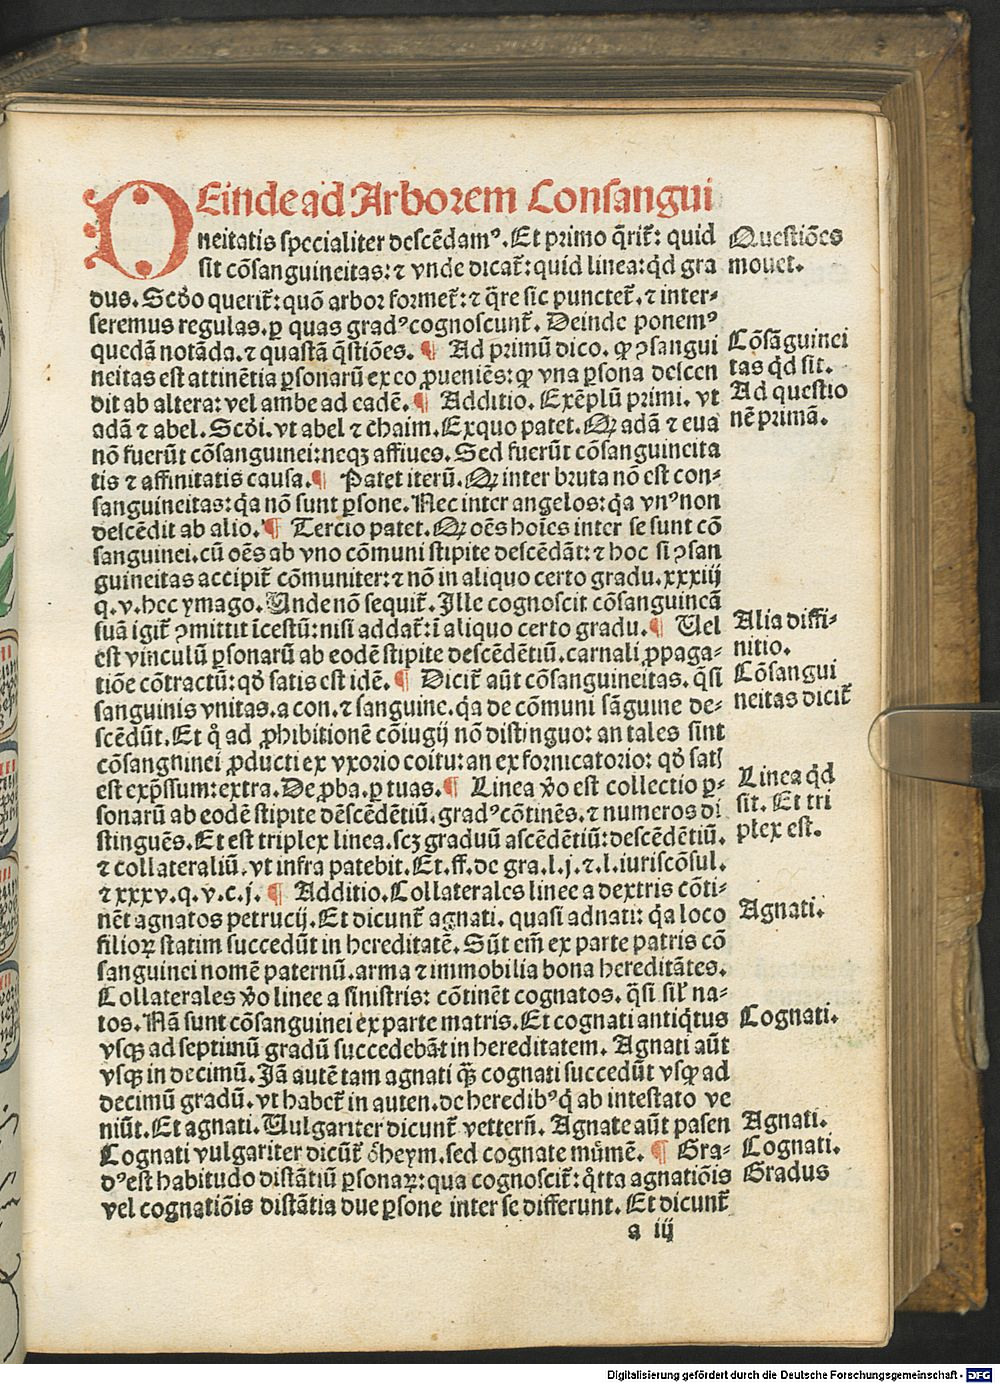 DEinde ad Arborem Consangui
neitatis specialiter descēdamꝰ. Et primo q̄rit̄: quid
sit cōsanguineitas: ⁊ vnde dicat̄: quid linea: qd̄ gra
dus. Scd̄o querit̄: quō arbor formet̄: ⁊ q̄re sic punctet̄. ⁊ inter⸗
seremus regulas. ꝑ quas gradꝰ cognoscunt̄. Deinde ponemꝰ
quedā notāda. ⁊ quastā q̄stiōes. ¶ Ad primū dico. ꝙ ꝯsangui
neitas est attinētia ꝑsonarū ex eo ꝓueniēs: ꝙ vna ꝑsona descen
dit ab altera: vel ambe ad eadē. ¶ Additio. Exēplū primi. vt
adā ⁊ abel. Scd̄i. vt abel ⁊ chaim. Ex quo patet. Ꝙ adā ⁊ eua
nō fuerūt cōsanguinei: neqꝫ affines. Sed fuerūt cōsanguineita
tis ⁊ affinitatis causa. ¶ Patet iterū. Ꝙ inter bruta nō est con⸗
sanguineitas: q̄a nō sunt ꝑsone. Nec inter angelos: q̄a vnꝰ non
descēdit ab alio. ¶ Tercio patet. Ꝙ oēs hoīes inter se sunt cō
sanguinei. cū oēs ab vno cōmuni stipite descēdāt: ⁊ hoc si ꝯsan
guineitas accipit̄ cōmuniter: ⁊ nō in aliquo certo gradu. xxxiij
q. v. hec ymago. Unde nō sequit̄. Ille cognoscit cōsanguineā
suā igit̄ ꝯmittit īcestū: nisi addat̄: ī aliquo certo gradu. ¶ Uel
est vinculū ꝑsonarū ab eodē stipite descēdētiū. carnali ꝓpaga⸗
tiōe cōtractū: qd̄ satis est idē. ¶ Dicit̄ aūt cōsanguineitas. q̄si
sanguinis vnitas. a con. ⁊ sanguine. q̄a de cōmuni sāguine de⸗
scēdūt. Et q̄ ad ꝓhibitionē cōiugij nō distinguo: an tales sint
cōsanguinei ꝓducti ex vxorio coitu: an ex fornicatorio: qd̄ satꝭ
est exp̄ssum: extra. De ꝓba. ꝑ tuas. ¶ Linea v̄o est collectio ꝑ⸗
sonarū ab eodē stipite dēscēdētiū. gradꝰ cōtinēs. ⁊ numeros di
stinguēs. Et est triplex linea. scꝫ graduū ascēdētiū: descēdētiū.
⁊ collateraliū. vt infra patebit. Et. ff. de gra. l. j. ⁊. l. iuriscōsul.
⁊ xxxv. q. v. c. j. ¶ Additio. Collaterales linee a dextris cōti⸗
nēt agnatos petrucij. Et dicunt̄ agnati. quasi adnati: q̄a loco
filioꝝ statim succedūt in hereditatē. Sūt em̄ ex parte patris cō
sanguinei nomē paternū. arma ⁊ immobilia bona hereditātes.
Collaterales v̄o linee a sinistris: cōtinēt cognatos. q̄si sil̄ na⸗
tos. Nā sunt cōsanguinei ex parte matris. Et cognati antiq̄tus
vsqꝫ ad septimū gradū succedebāt in hereditatem. Agnati aūt
vsqꝫ in decimū. Jā autē tam agnati q̄ꝫ cognati succedūt vsqꝫ ad
decimū gradū. vt habet̄ in auten. de heredibꝰ q̄ ab intestato ve
niūt. Et agnati. Uulgariter dicunt̄ vettern̄. Agnate aūt pasen
Cognati vulgariter dicūt̄ oͤheym. sed cognate muͤmē. ¶ Gra⸗
dꝰ est habitudo distātiū ꝑsonaꝝ: qua cognoscit̄: q̄tta agnatiōis
vel cognatiōis distātia due ꝑsone inter se differunt. Et dicunt̄
a iij
Questiōes
mouet.
Cōsāguinei
tas qd̄ sit.
Ad questio
nē primā.
Alia diffi⸗
nitio.
Cōsangui
neitas dicit̄
Linea qd̄
sit. Et tri
plex est.
Agnati.
Cognati.
Agnati.
Cognati.
Gradus
Digitalisierung gefördert durch die Deutsche Forschungsgemeinschaft - DFG